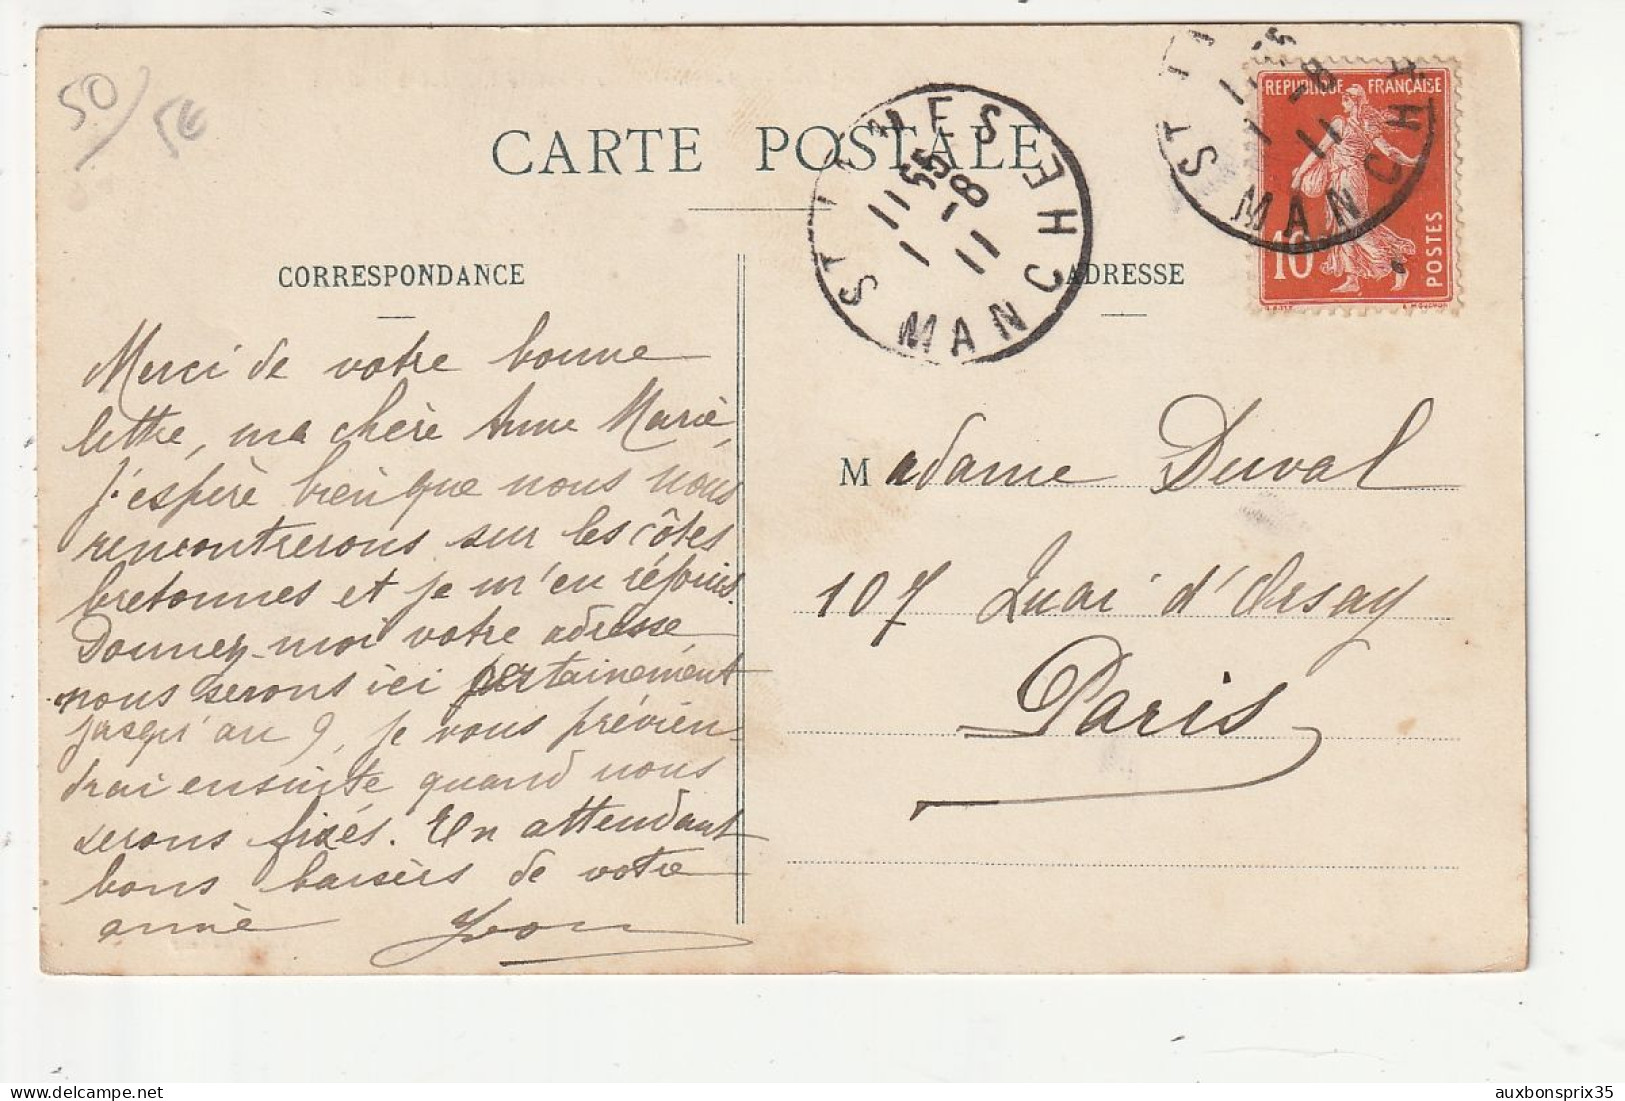 50/5€
CARTE POSTALE
CORRESPONDANCE
ADRESSE
REPUBLIQUE FRANÇAISE
10
POSTES
ST JAMES
11 55
1 - 8
11
MANCHE
ST
1 - 8
11
MANCH
Merci de votre bonne
lettre, ma chère Anne Marie,
j'espère bien que nous nous
rencontrerons sur les côtes
bretonnes et je m'en réjouis.
Donnez-moi votre adresse,
nous serons ici certainement
jusqu'au 9, je vous prévien-
drai ensuite quand nous
serons fixés. En attendant
bons baisers de votre
amie Yvon
Madame Duval
107 Quai d'Orsay
Paris
auxbonsprix35